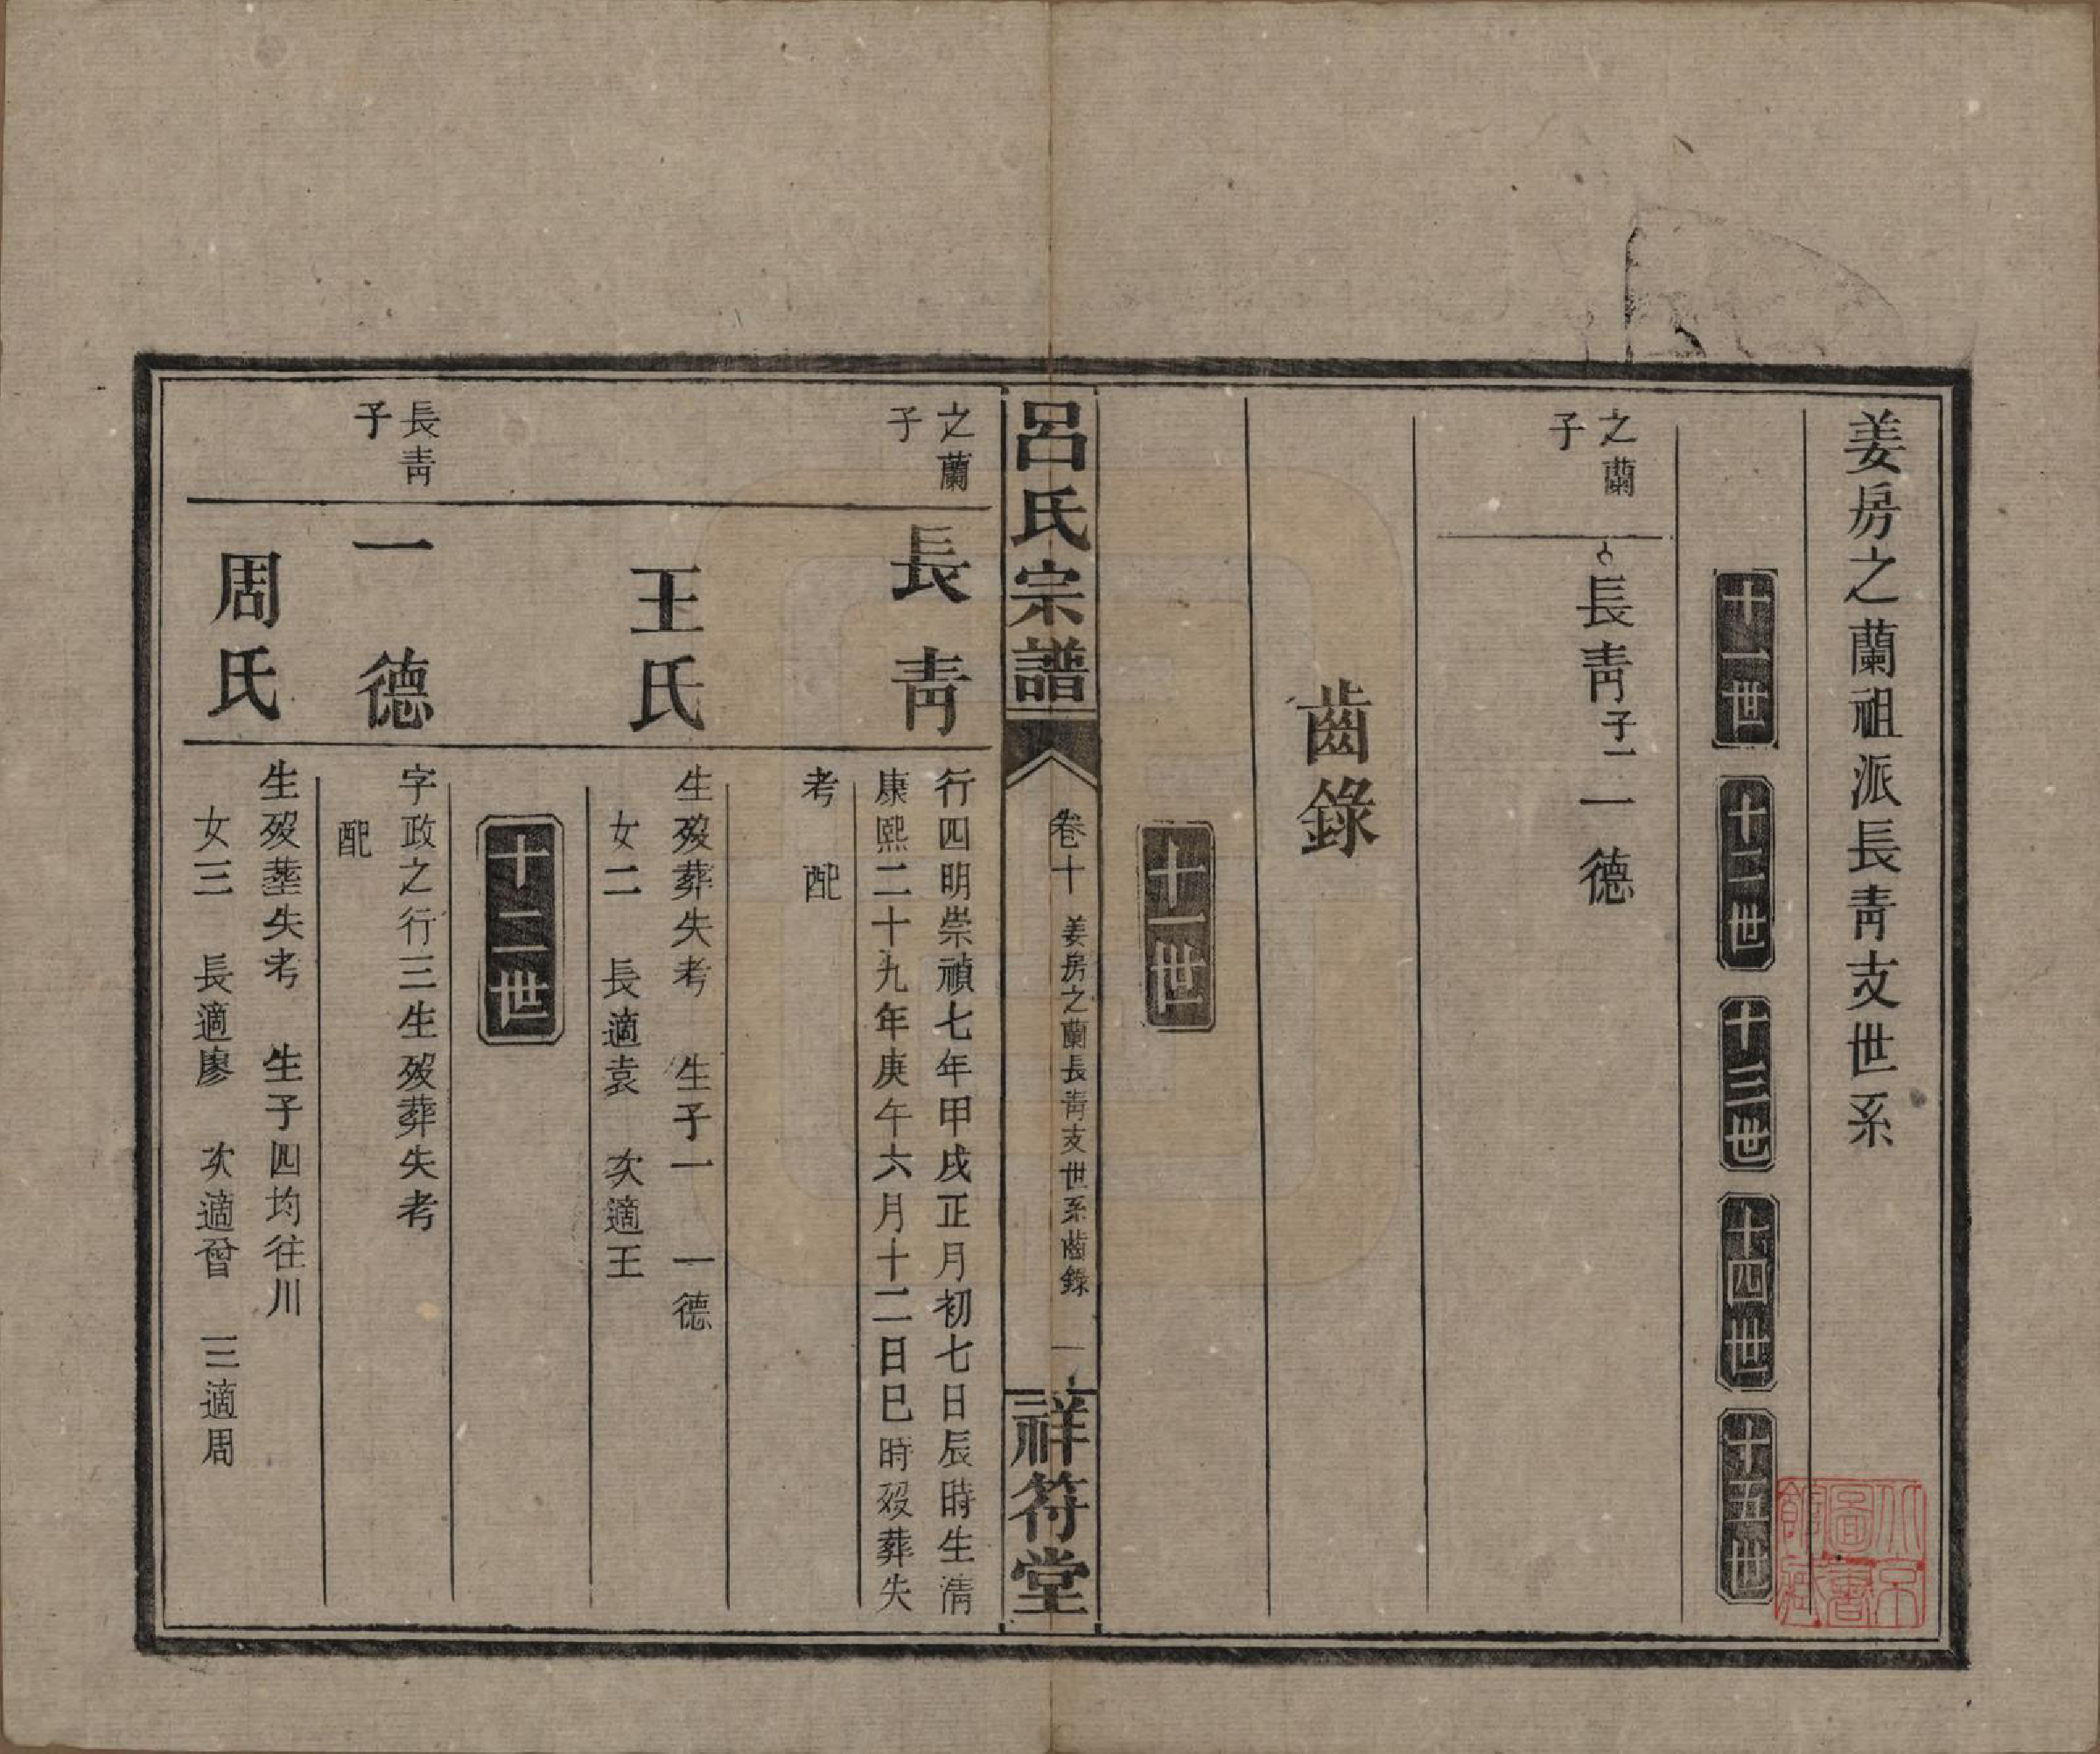 姜房之蘭祖派長青支世系
十一世
十二世
十三世
十四世
十五世
之蘭
子
長青子一
一德
齒錄
十一世
呂氏宗譜
卷十
姜房之蘭長青支世系齒錄
一
祥符堂
之蘭
子
長青
行四明崇禎七年甲戌正月初七日辰時生清
康熙二十九年庚午六月十二日巳時歿葬失
考 配
王氏
生歿葬失考 生子一 一德
女二 長適袁 次適王
十二世
長青
子
一德
字政之行三生歿葬失考
配
周氏
生歿塟失考 生子四均往川
女三 長適廖 次適曾 三適周
北京
圖書
館藏